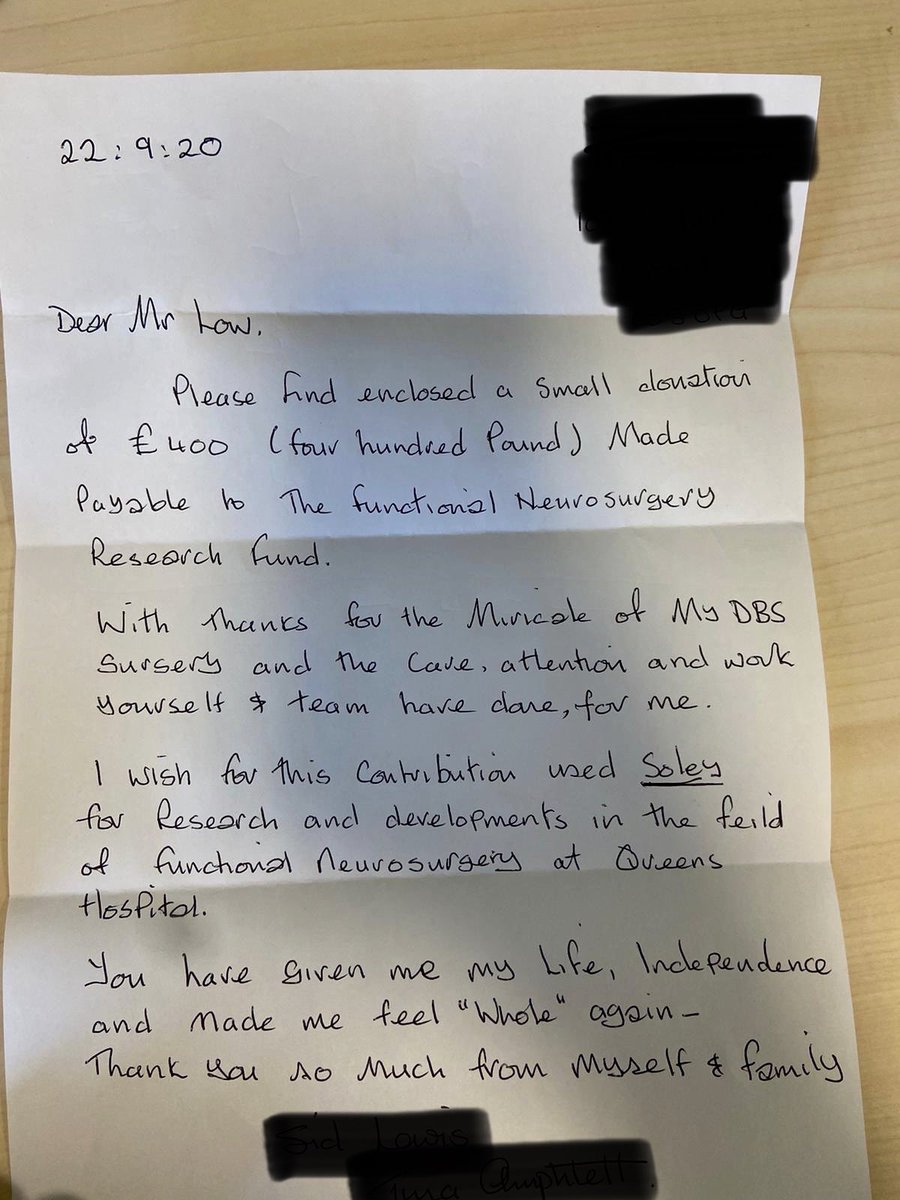 22:9:20
Dear Mr Low,
Please find enclosed a small donation
of £400 (four hundred Pound) Made
Payable to The functional Neurosurgery
Research fund.
With thanks for the Miricale of My DBS
Surgery and the Care, attention and work
yourself & team have done, for me.
I wish for this Contribution used Soley
for Research and developments in the feild
of functional Neurosurgery at Queens
Hospital.
You have given me my Life, Independence
and Made me feel "Whole" again –
Thank you so Much from Myself & family